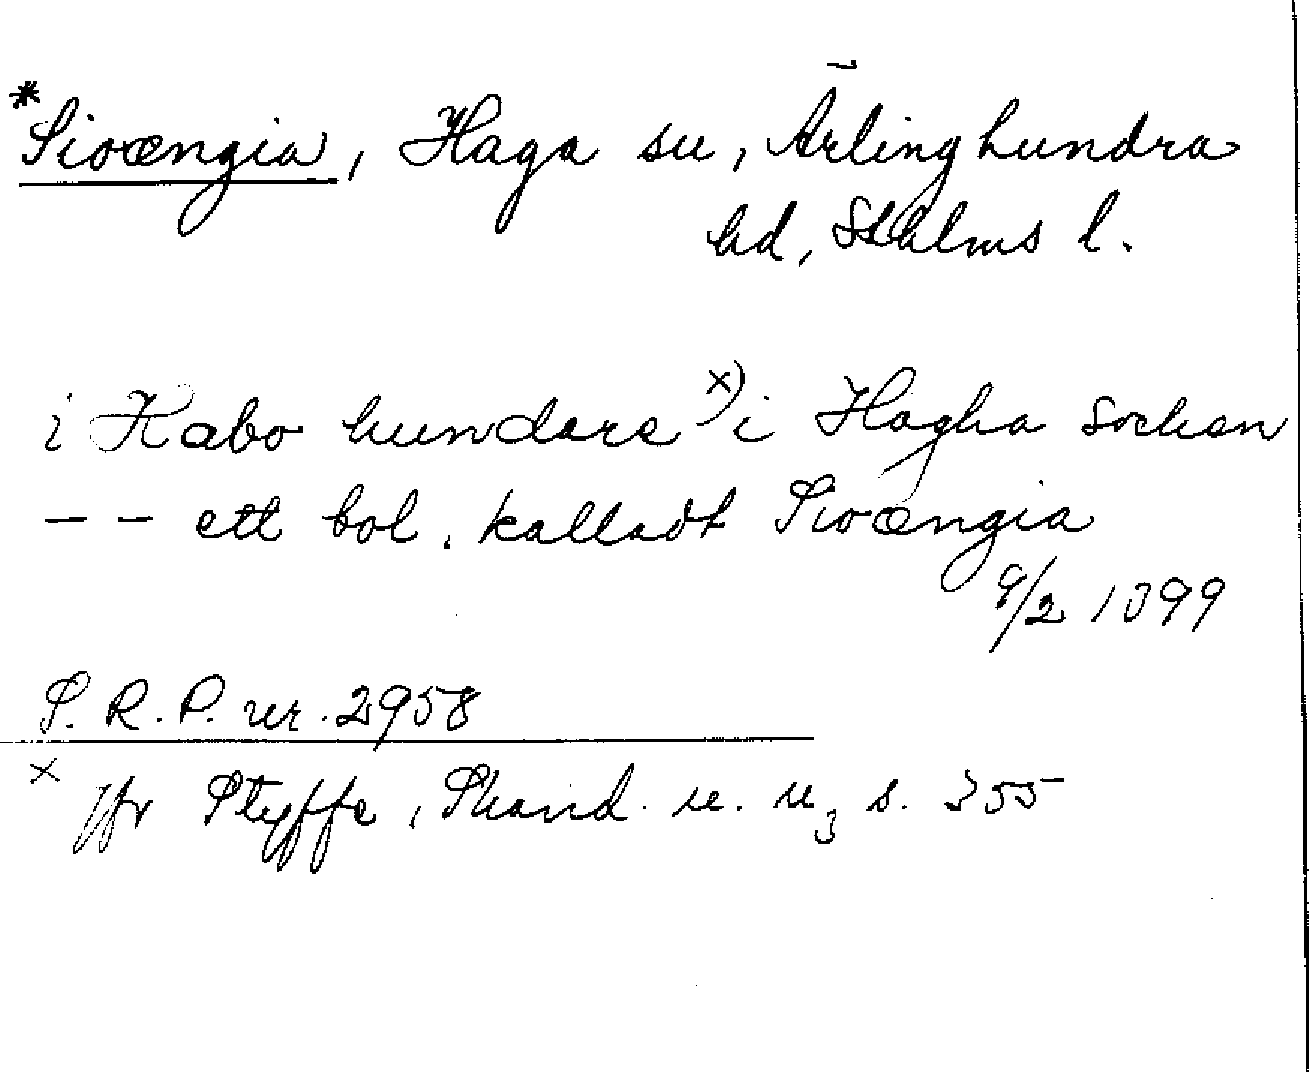 *Sioængia, Haga sn, Ärlinghundra
hd, Sthlms l.
i Habo hundare x) i Hagha socken
-- ett bol, kalladt Sioængia
9/2 1399
S. R. P. nr. 2958
x jfr Styffe, Skand. u. u3 s. 355